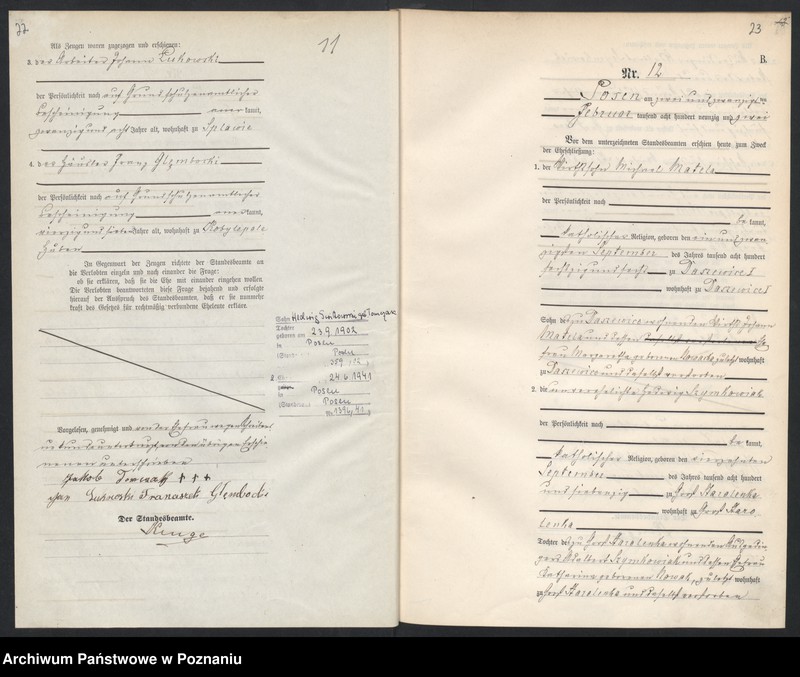 22
11
Als Zeugen waren zugezogen und erschienen:
3. der Arbeiter Johann Lukowski
der Persönlichkeit nach auf Grund schutzenamtlicher
Bescheinigung kannt,
zwanzig und acht Jahre alt, wohnhaft zu Splawie
4. der Häusler Franz Glemboski
der Persönlichkeit nach auf Grund schutzenamtlicher
Bescheinigung kannt,
vierzig und sieben Jahre alt, wohnhaft zu Kobylepole
In Gegenwart der Zeugen richtete der Standesbeamte an
die Verlobten einzeln und nach einander die Frage:
ob sie erklären, daß sie die Ehe mit einander eingehen wollen.
Die Verlobten beantworteten diese Frage bejahend und erfolgte
hierauf der Ausspruch des Standesbeamten, daß er sie nunmehr
kraft des Gesetzes für rechtmäßig verbundene Eheleute erkläre.
Sohn Hedwig
Tochter
geboren am 23.9.1902
in Posen
(Stand Posen
2.
24.6.1941
in Posen
(Standesamt Posen
Vorgelesen, genehmigt und von der Ehefrau wegen
unterschrieben
Jakob Tomczak + + +
Jan Franaszek Glemboski
Der Standesbeamte.
Kluge
23
B.
Nr. 12
Posen am zwei und zwanzigsten
Februar tausend acht hundert neunzig und zwei
Vor dem unterzeichneten Standesbeamten erschien heute zum Zweck
der Eheschließung:
1. der Wirthssohn Michael Matela
der Persönlichkeit nach
be kannt,
katholischer Religion, geboren den ein und zwan
zigsten September des Jahres tausend acht hundert
sechzig und sechs zu Daszewice
wohnhaft zu Daszewice
Sohn des zu Daszewice wohnenden Wirth Johann
Matela und dessen
frau Margaretha geborenen Nowak, zuletzt wohnhaft
zu Daszewice und daselbst verstorben
2. die unverehelichte Hedwig Szymkowiak
der Persönlichkeit nach
be kannt,
katholischer Religion, geboren den vierzehnten
September des Jahres tausend acht hundert
und siebenzig zu Forst Karolenka
wohnhaft zu Forst Karo
lenka
Tochter des zu Forst Karolenka wohnenden Ausgedin
gers Adalbert Szymkowiak und dessen Ehefrau
Katharina geborenen Nowak, zuletzt wohnhaft
zu Forst Karolenka und daselbst verstorben
Archiwum Państwowe w Poznaniu